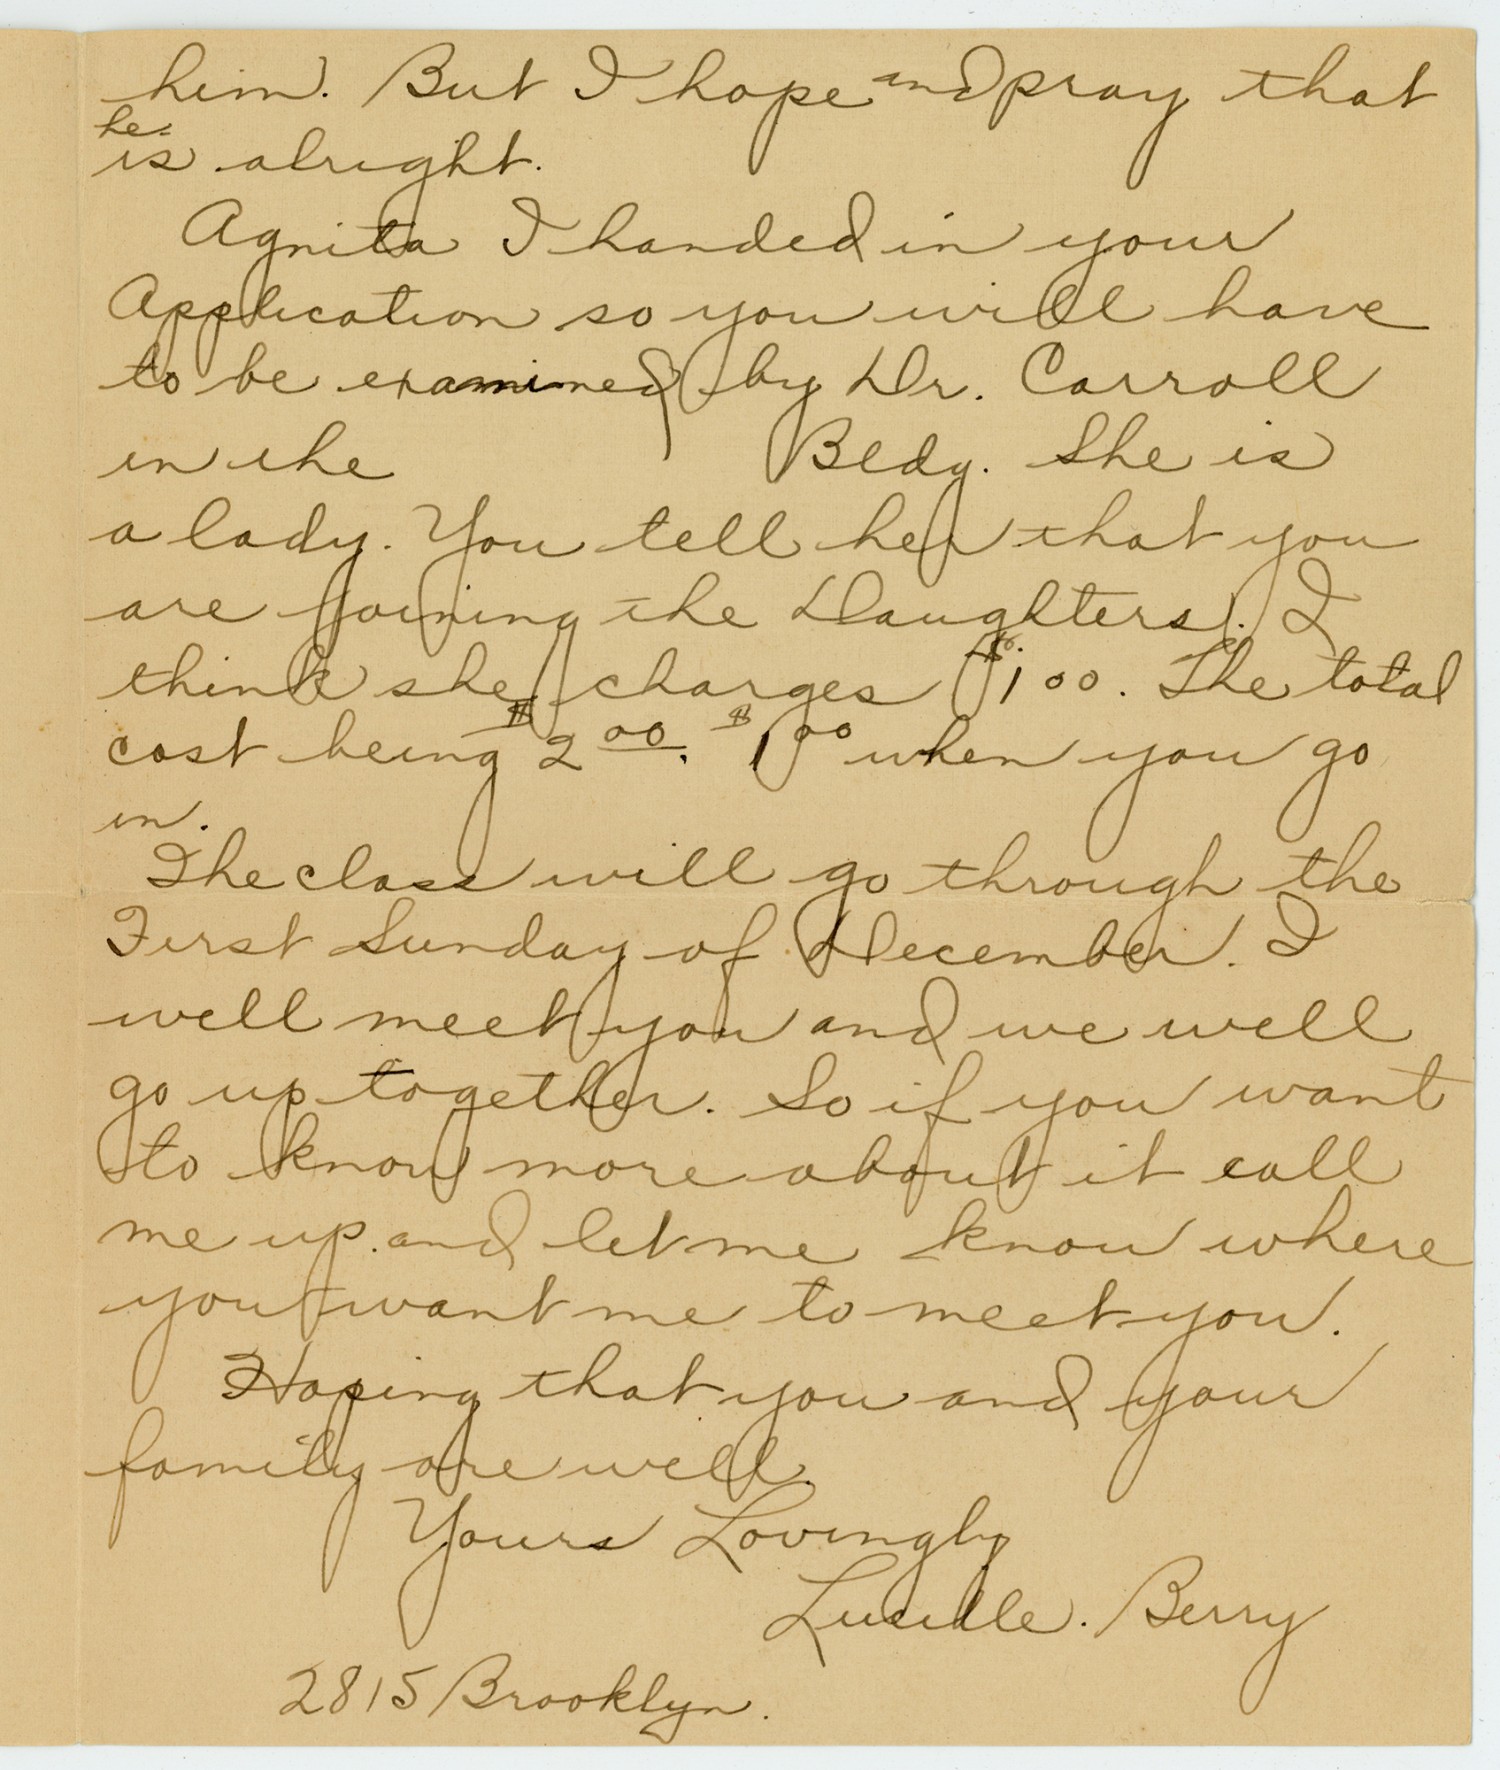 him. But I hope and pray that
he is alright.
Agnita I handed in your
Application so you will have
to be examined by Dr. Carroll
in the Bldg. She is
a lady. You tell her that you
are Joining the Daughters. I
think she charges $1 00. The total
cost being $2 00. $1 00 when you go
in.
The class will go through the
First Sunday of December. I
well meet you and we well
go up together. So if you want
to know more about it call
me up. and let me know where
you want me to meet you.
Hoping that you and your
family are well.
Yours Lovingly
Lucille. Berry
2815 Brooklyn.